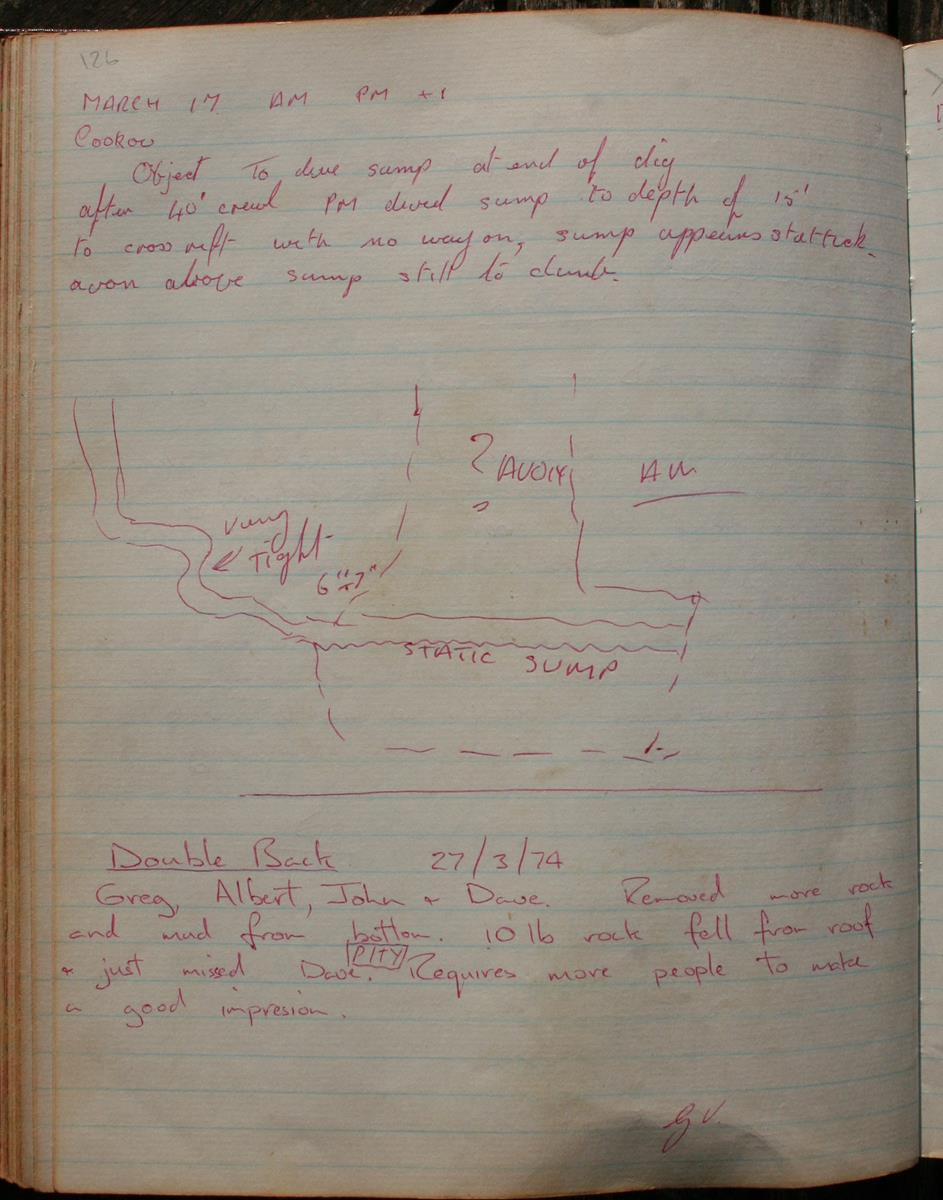 126
MARCH 17 AM PM +1
Cookow
Object To dive sump at end of dig
after 40' crawl PM dived sump to depth of 15'
to cross rift with no way on, sump appears stattick
avon above sump still to climb.
? AVON
AM
very
Tight
6"-7"
STATIC SUMP
Double Back 27/3/74
Greg, Albert, John + Dave. Removed more rock
and mud from bottom. 10 lb rock fell from roof
PITY
+ just missed Dave. Requires more people to make
a good impresion.
GV.